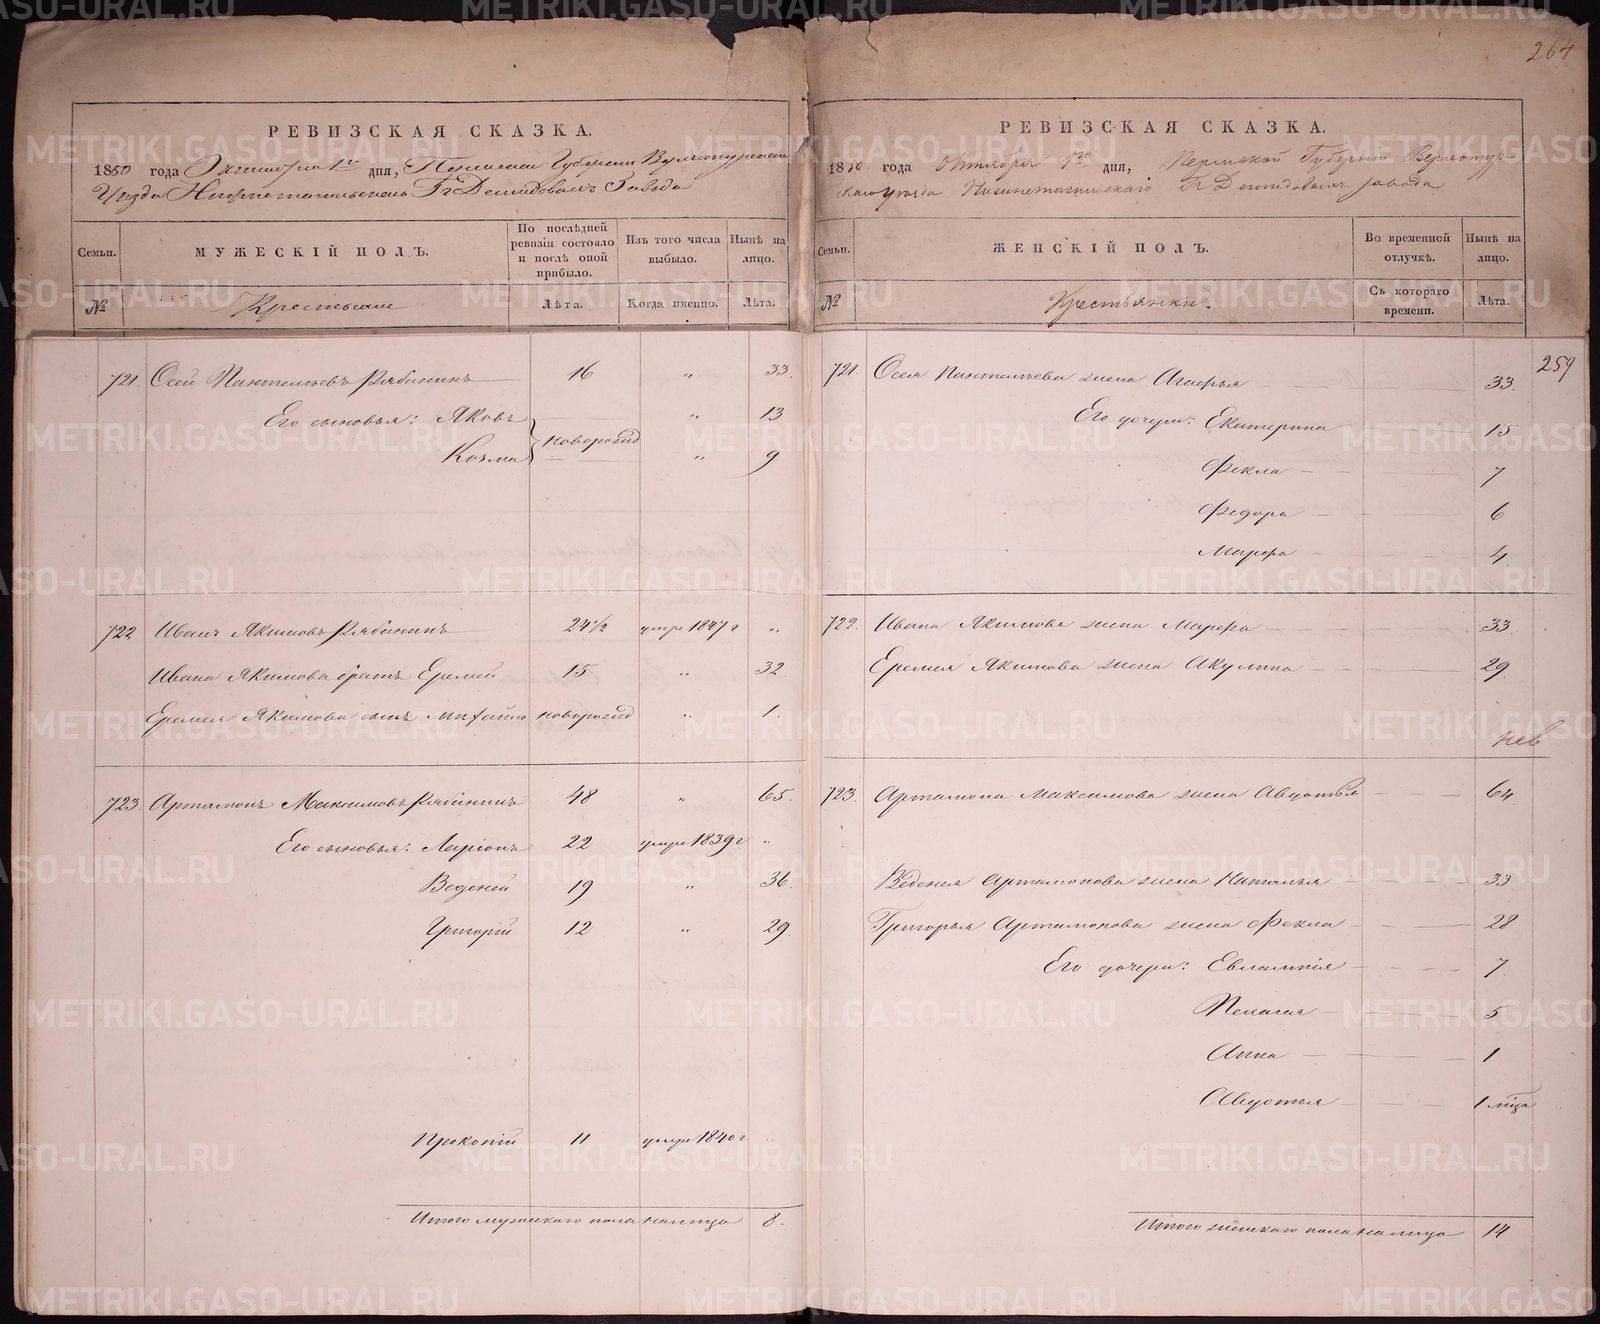 264
РЕВИЗСКАЯ СКАЗКА.
1850 года Октября 1го дня, Пермской Губернии Верхотурскаго
Уезда Нижнетагильскаго Гг Демидовыхъ Завода
Семьи.
МУЖЕСКІЙ ПОЛЪ.
По послѣдней ревизіи состояло и послѣ оной прибыло.
Изъ того числа выбыло.
Нынѣ на лицо.
№
Крестьяне
Лѣта.
Когда именно.
Лѣта.
721. Осей Пантелѣевъ Рябининъ 16 " 33.
Его сыновья: Яковъ " 13
новорожд
Козма " 9
722 Иванъ Якимовъ Рябининъ 24 1/2 умре 1847 г "
Ивана Якимова братъ Еремей 15 " 32.
Еремея Якимова сынъ Михайло новорожд " 1.
723. Артамонъ Максимовъ Рябининъ 48 " 65.
Его сыновья: Ларіонъ 22 умре 1839 г "
Веденей 19 " 36.
Григорій 12 " 29.
Прокопій 11 умре 1840 г "
Итого мужескаго пола налицо 8.
РЕВИЗСКАЯ СКАЗКА.
1850 года Октября 1го дня, Пермской Губерніи Верхотур-
скаго уезда Нижнетагильскаго Гг Демидовыхъ завода
Семьи.
ЖЕНСКІЙ ПОЛЪ.
Во временной отлучкѣ.
Нынѣ на лицо.
№
Крестьянки.
Съ котораго времени.
Лѣта.
259
721. Осея Пантелѣева жена Агафья 33.
Его дочери: Екатерина 15
Фекла 7
Федора 6
Марфа 4.
722. Ивана Якимова жена Марфа 33.
Еремея Якимова жена Акулина 29.
723. Артамона Максимова жена Авдотья 64
Веденея Артамонова жена Наталья 33
Григорья Артамонова жена Фекла 28
Его дочери: Евлампія 7.
Пелагея 5
Анна 1
Авдотья 1 мѣсц
Итого женскаго пола налицо 14
METRIKI.GASO-URAL.RU